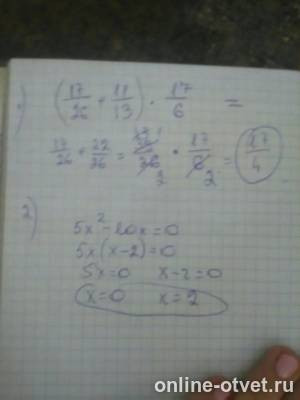 1) (17/26 + 11/13) · 17/6 =
17/26 + 22/26 = 39/26 · 17/6 = 17/4
2)
5x² - 10x = 0
5x(x-2) = 0
5x=0 x-2=0
x=0 x=2
online-otvet.ru